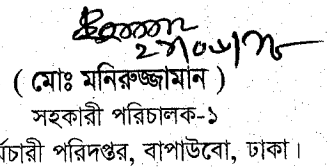 ( মোঃ মনিরুজ্জামান )
সহকারী পরিচালক-১
র্মচারী পরিদপ্তর, বাপাউবো, ঢাকা।